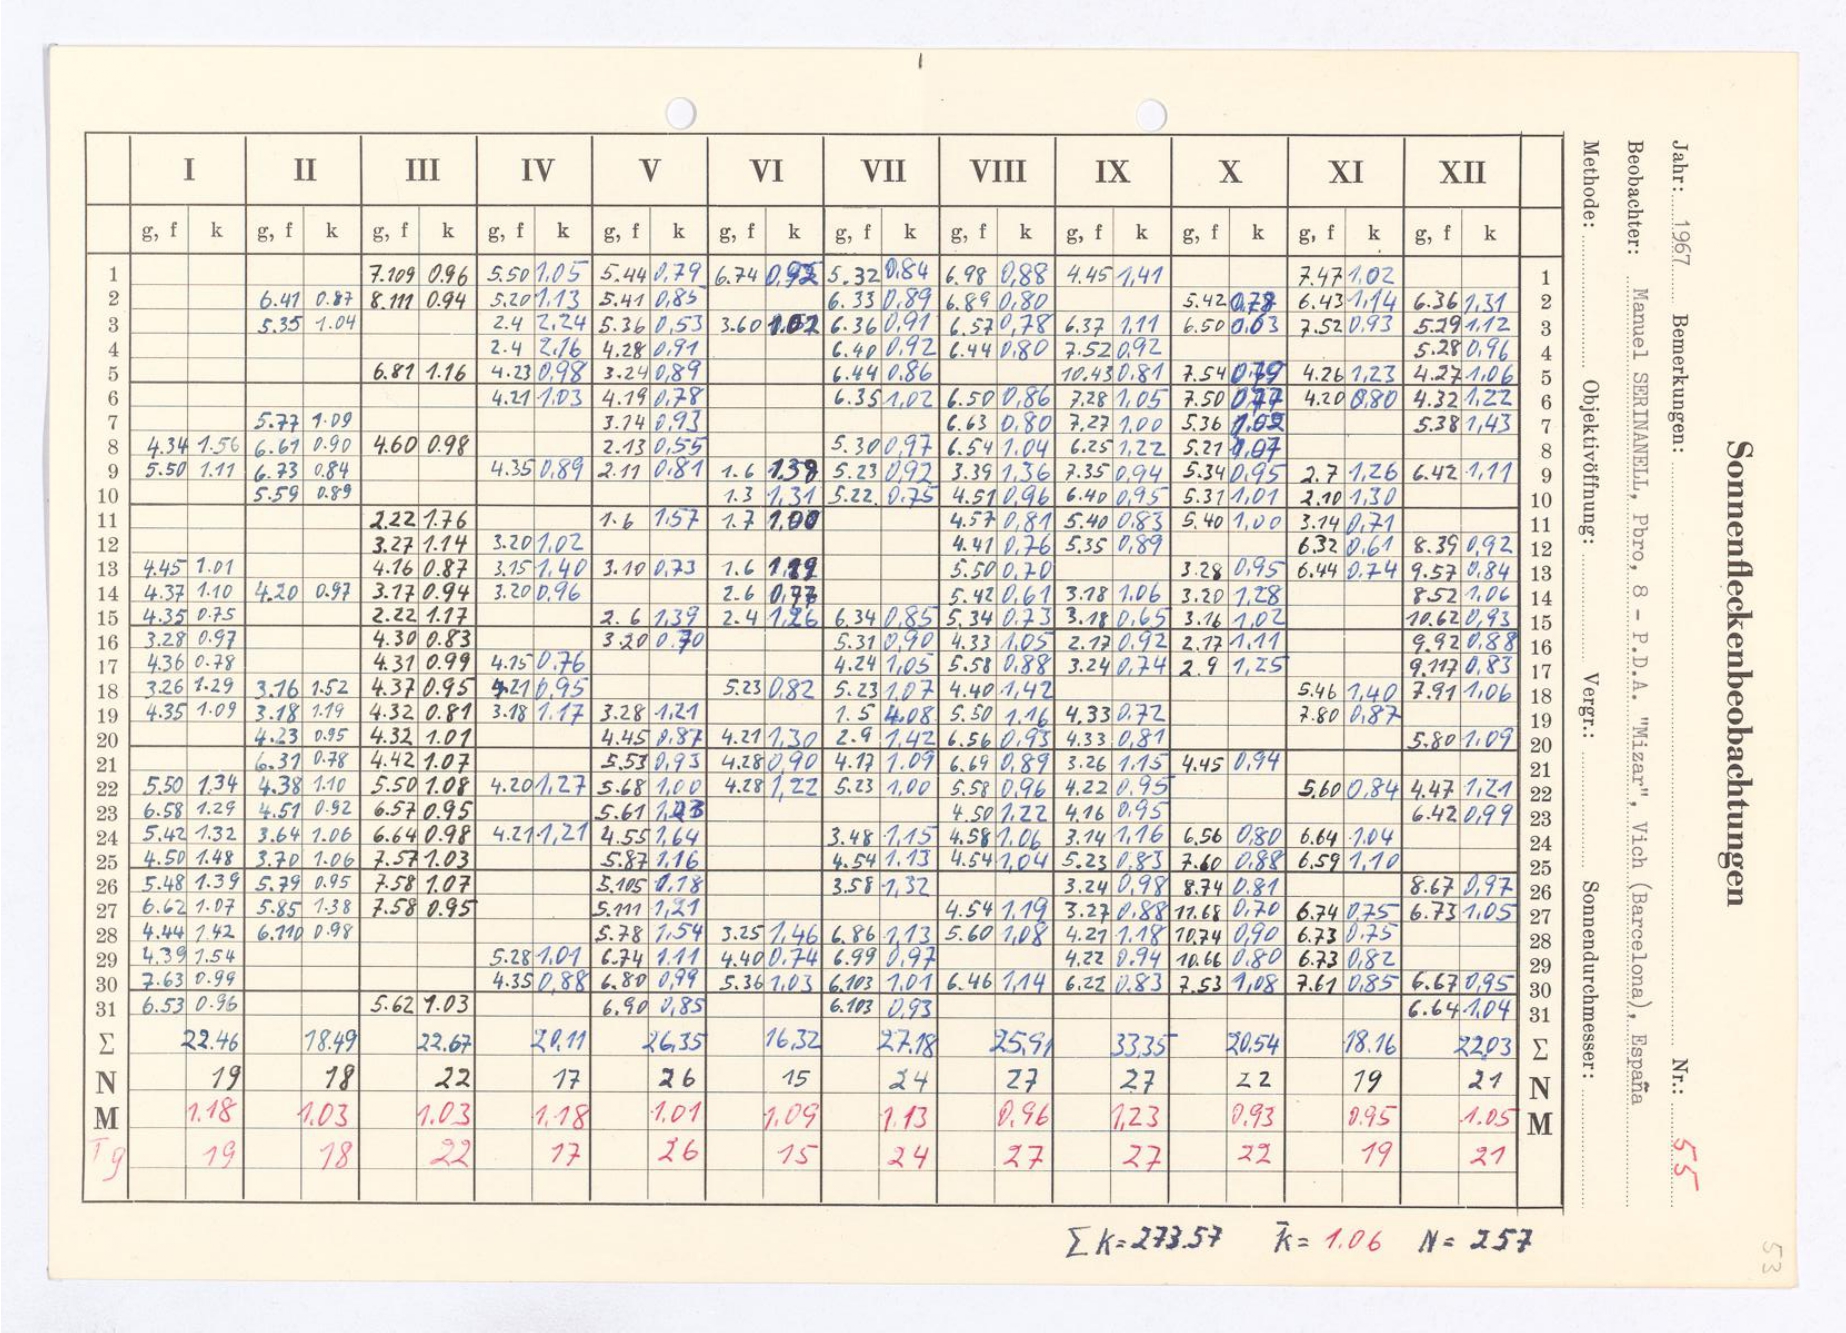 Sonnenfleckenbeobachtungen
Jahr: 1967 Bemerkungen: Nr.: 55
Beobachter: Manuel SERINANELL, Pbro, 8 - P.D.A. "Mizar", Vich (Barcelona), España
Methode: Objektivöffnung: Vergr.: Sonnendurchmesser:
I II III IV V VI VII VIII IX X XI XII
g, f k g, f k g, f k g, f k g, f k g, f k g, f k g, f k g, f k g, f k g, f k g, f k
1 7.109 0.96 5.50 1,05 5.44 0,79 6.74 5.32 0,84 6.98 0,88 4.45 1,41 7.47 1,02 1
2 6.41 0.87 8.111 0.94 5.20 1,13 5.41 0,85 6.33 0,89 6.89 0,80 5.42 0,78 6.43 1,14 6.36 1,31 2
3 5.35 1.04 2.4 2,24 5.36 0,53 3.60 1.02 6.36 0,91 6.57 0,78 6.37 1,11 6.50 0,63 7.52 0,93 5.29 1,12 3
4 2.4 2,16 4.28 0,91 6.40 0,92 6.44 0,80 7.52 0,92 5.28 0,96 4
5 6.81 1.16 4.23 0,98 3.24 0,89 6.44 0,86 10.43 0,81 7.54 0,79 4.26 1,23 4.27 1,06 5
6 4.21 1,03 4.19 0,78 6.35 1,02 6.50 0,86 7.28 1,05 7.50 0,77 4.20 0,80 4.32 1,22 6
7 5.77 1.09 3.14 0,93 6.63 0,80 7.27 1,00 5.36 1,02 5.38 1,43 7
8 4.34 1.56 6.61 0.90 4.60 0.98 2.13 0,55 5.30 0,97 6.54 1,04 6.25 1,22 5.21 1,07 8
9 5.50 1.11 6.73 0.84 4.35 0,89 2.11 0,81 1.6 1.39 5.23 0,92 3.39 1,36 7.35 0,94 5.34 0,95 2.7 1,26 6.42 1,11 9
10 5.59 0.89 1.3 1,31 5.22 0,75 4.51 0,96 6.40 0,95 5.31 1,01 2.10 1,30 10
11 2.22 1.76 1.6 1,57 1.7 1,00 4.57 0,81 5.40 0,83 5.40 1,00 3.14 0,71 11
12 3.27 1.14 3.20 1,02 4.41 0,76 5.35 0,89 6.32 0,61 8.39 0,92 12
13 4.45 1.01 4.16 0.87 3.15 1,40 3.10 0,73 1.6 1,19 5.50 0,70 3.28 0,95 6.44 0,74 9.57 0,84 13
14 4.37 1.10 4.20 0.97 3.17 0.94 3.20 0,96 2.6 0,77 5.42 0,61 3.18 1,06 3.20 1,28 8.52 1,06 14
15 4.35 0.75 2.22 1.17 2.6 1,39 2.4 1,26 6.34 0,85 5.34 0,73 3.18 0,65 3.16 1,02 10.62 0,93 15
16 3.28 0.97 4.30 0.83 3.20 0,70 5.31 0,90 4.33 1,05 2.17 0,92 2.17 1,11 9.92 0,88 16
17 4.36 0.78 4.31 0.99 4.15 0,76 4.24 1,05 5.58 0,88 3.24 0,74 2.9 1,25 9.117 0,83 17
18 3.26 1.29 3.16 1.52 4.37 0.95 4.21 0,95 5.23 0,82 5.23 1,07 4.40 1,42 5.46 1,40 7.91 1,06 18
19 4.35 1.09 3.18 1.19 4.32 0.81 3.18 1,17 3.28 1,21 1.5 4,08 5.50 1,16 4.33 0,72 7.80 0,87 19
20 4.23 0.95 4.32 1.01 4.45 0,87 4.21 1,30 2.9 1,42 6.56 0,93 4.33 0,81 5.80 1,09 20
21 6.31 0.78 4.42 1.07 5.53 0,93 4.28 0,90 4.17 1,09 6.69 0,89 3.26 1,15 4.45 0,94 21
22 5.50 1.34 4.38 1.10 5.50 1.08 4.20 1,27 5.68 1,00 4.28 1,22 5.23 1,00 5.58 0,96 4.22 0,95 5.60 0,84 4.47 1,21 22
23 6.58 1.29 4.51 0.92 6.57 0.95 5.61 4.50 1,22 4.16 0,95 6.42 0,99 23
24 5.42 1.32 3.64 1.06 6.64 0.98 4.21 1,21 4.55 1,64 3.48 1,15 4.58 1,06 3.14 1,16 6.56 0,80 6.64 1,04 24
25 4.50 1.48 3.70 1.06 7.57 1.03 5.87 1,16 4.54 1,13 4.54 1,04 5.23 0,83 7.60 0,88 6.59 1,10 25
26 5.48 1.39 5.79 0.95 7.58 1.07 5.105 0,18 3.58 1,32 3.24 0,98 8.74 0,81 8.67 0,97 26
27 6.62 1.07 5.85 1.38 7.58 0.95 5.111 1,21 4.54 1,19 3.27 0,88 11.68 0,70 6.74 0,75 6.73 1,05 27
28 4.44 1.42 6.110 0.98 5.78 1,54 3.25 1,46 6.86 1,13 5.60 1,08 4.21 1,18 10.74 0,90 6.73 0,75 28
29 4.39 1.54 5.28 1,01 6.74 1,11 4.40 0,74 6.99 0,97 4.22 0,94 10.66 0,80 6.73 0,82 29
30 7.63 0.99 4.35 0,88 6.80 0,99 5.36 1,03 6.103 1,01 6.46 1,14 6.22 0,83 7.53 1,08 7.61 0,85 6.67 0,95 30
31 6.53 0.96 5.62 1.03 6.90 0,85 6.103 0,93 6.64 1,04 31
Σ 22.46 18.49 22.67 20,11 26,35 16,32 27.18 25,91 33,35 20,54 18.16 22,03 Σ
N 19 18 22 17 26 15 24 27 27 22 19 21 N
M 1.18 1.03 1.03 1,18 1.01 1,09 1,13 0,96 1,23 0,93 0.95 1.05 M
Tg 19 18 22 17 26 15 24 27 27 22 19 21
Σ k = 273.57 k̄ = 1.06 N = 257
53